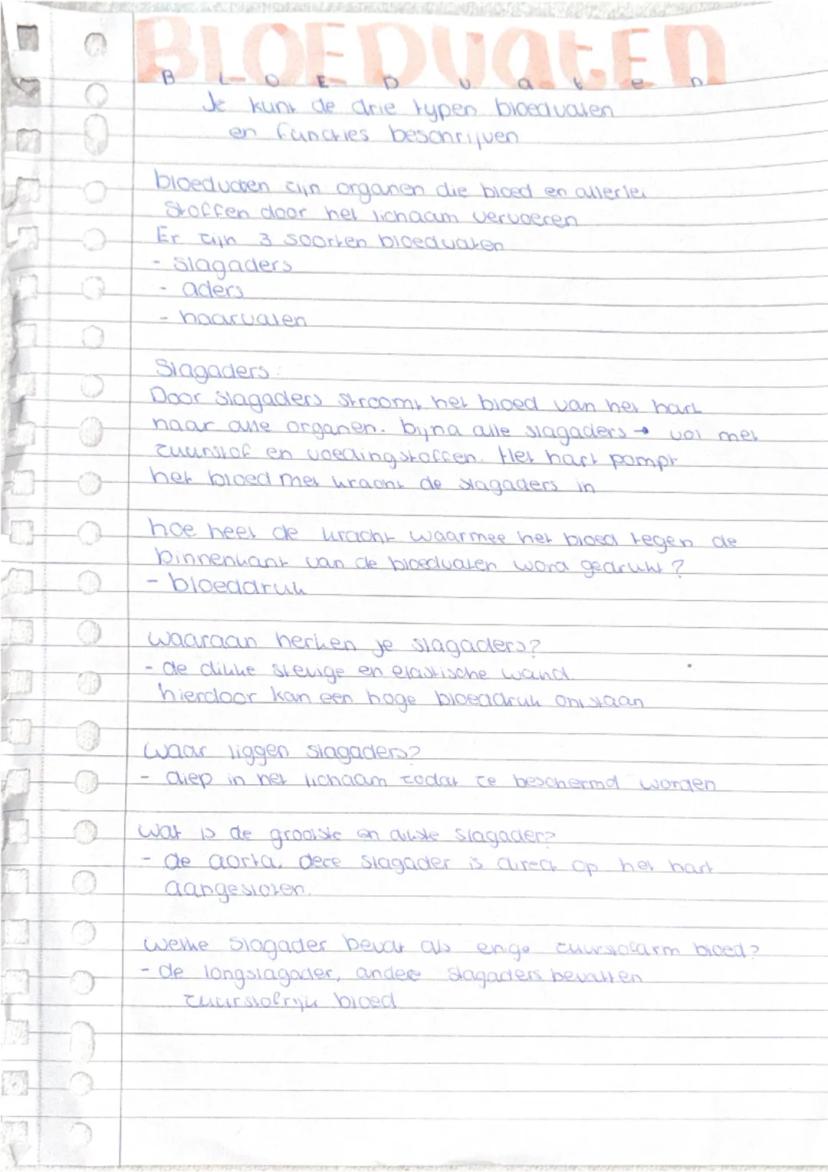 BLOEDVATEN
BLOEDvaten
Je kunt de drie typen bloedvaten
en functies beschrijven
bloedvaten zijn organen die bloed en allerlei
stoffen door het lichaam vervoeren
Er zijn 3 soorten bloedvaten
- slagaders
- aders
- haarvaten
Slagaders:
Door slagaders stroomt het bloed van het hart
naar alle organen. bijna alle slagaders → vol met
zuurstof en voedingstoffen. Het hart pompt
het bloed met kracht de slagaders in
hoe heet de kracht waarmee het bloed tegen de
binnenkant van de bloedvaten word gedrukt?
- bloeddruk
waaraan herken je slagaders?
- de dikke stevige en elastische wand.
hierdoor kan een hoge bloeddruk ontstaan
waar liggen slagaders?
- diep in het lichaam zodat ze beschermd worden
wat is de grootste en dikste slagader?
- de aorta. deze slagader is direct op het hart
aangesloten.
welke slagader bevat als enige zuurstofarm bloed?
- de longslagader, andee slagaders bevatten
zuurstofrijk bloed